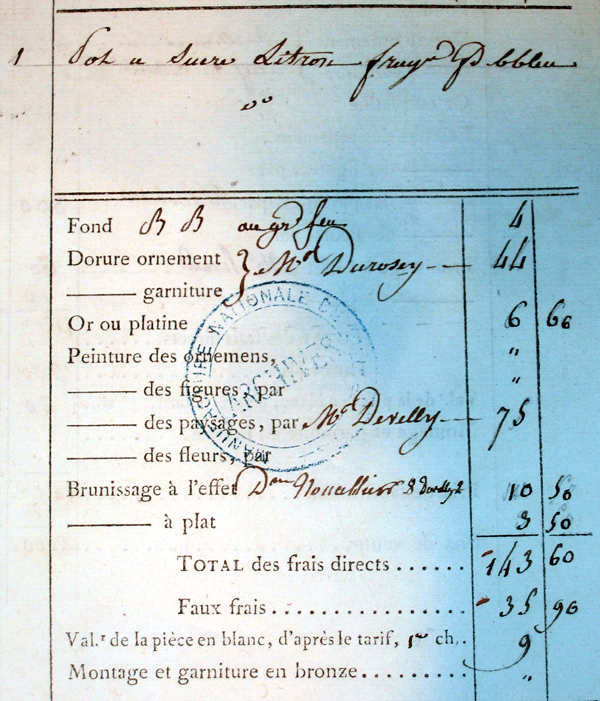 1 Pot a Sucre Litron frag.r fd bbleu
do
Fond BB au grd feu
Dorure ornement } Md Durosey 44
——— garniture
4
Or ou platine 6 66
Peinture des ornemens, "
——— des figures, par "
——— des paysages, par Mr Develly 75
——— des fleurs, par
Brunissage à l'effet Dme Nouailhier & Develly 10 50
——— à plat 3 50
TOTAL des frais directs ...... 143 60
Faux frais ............... 35 90
Val.r de la pièce en blanc, d'après le tarif, 1er ch. . 9
Montage et garniture en bronze ......... "
MANUFACTURE NATIONALE DE
ARCHIVES